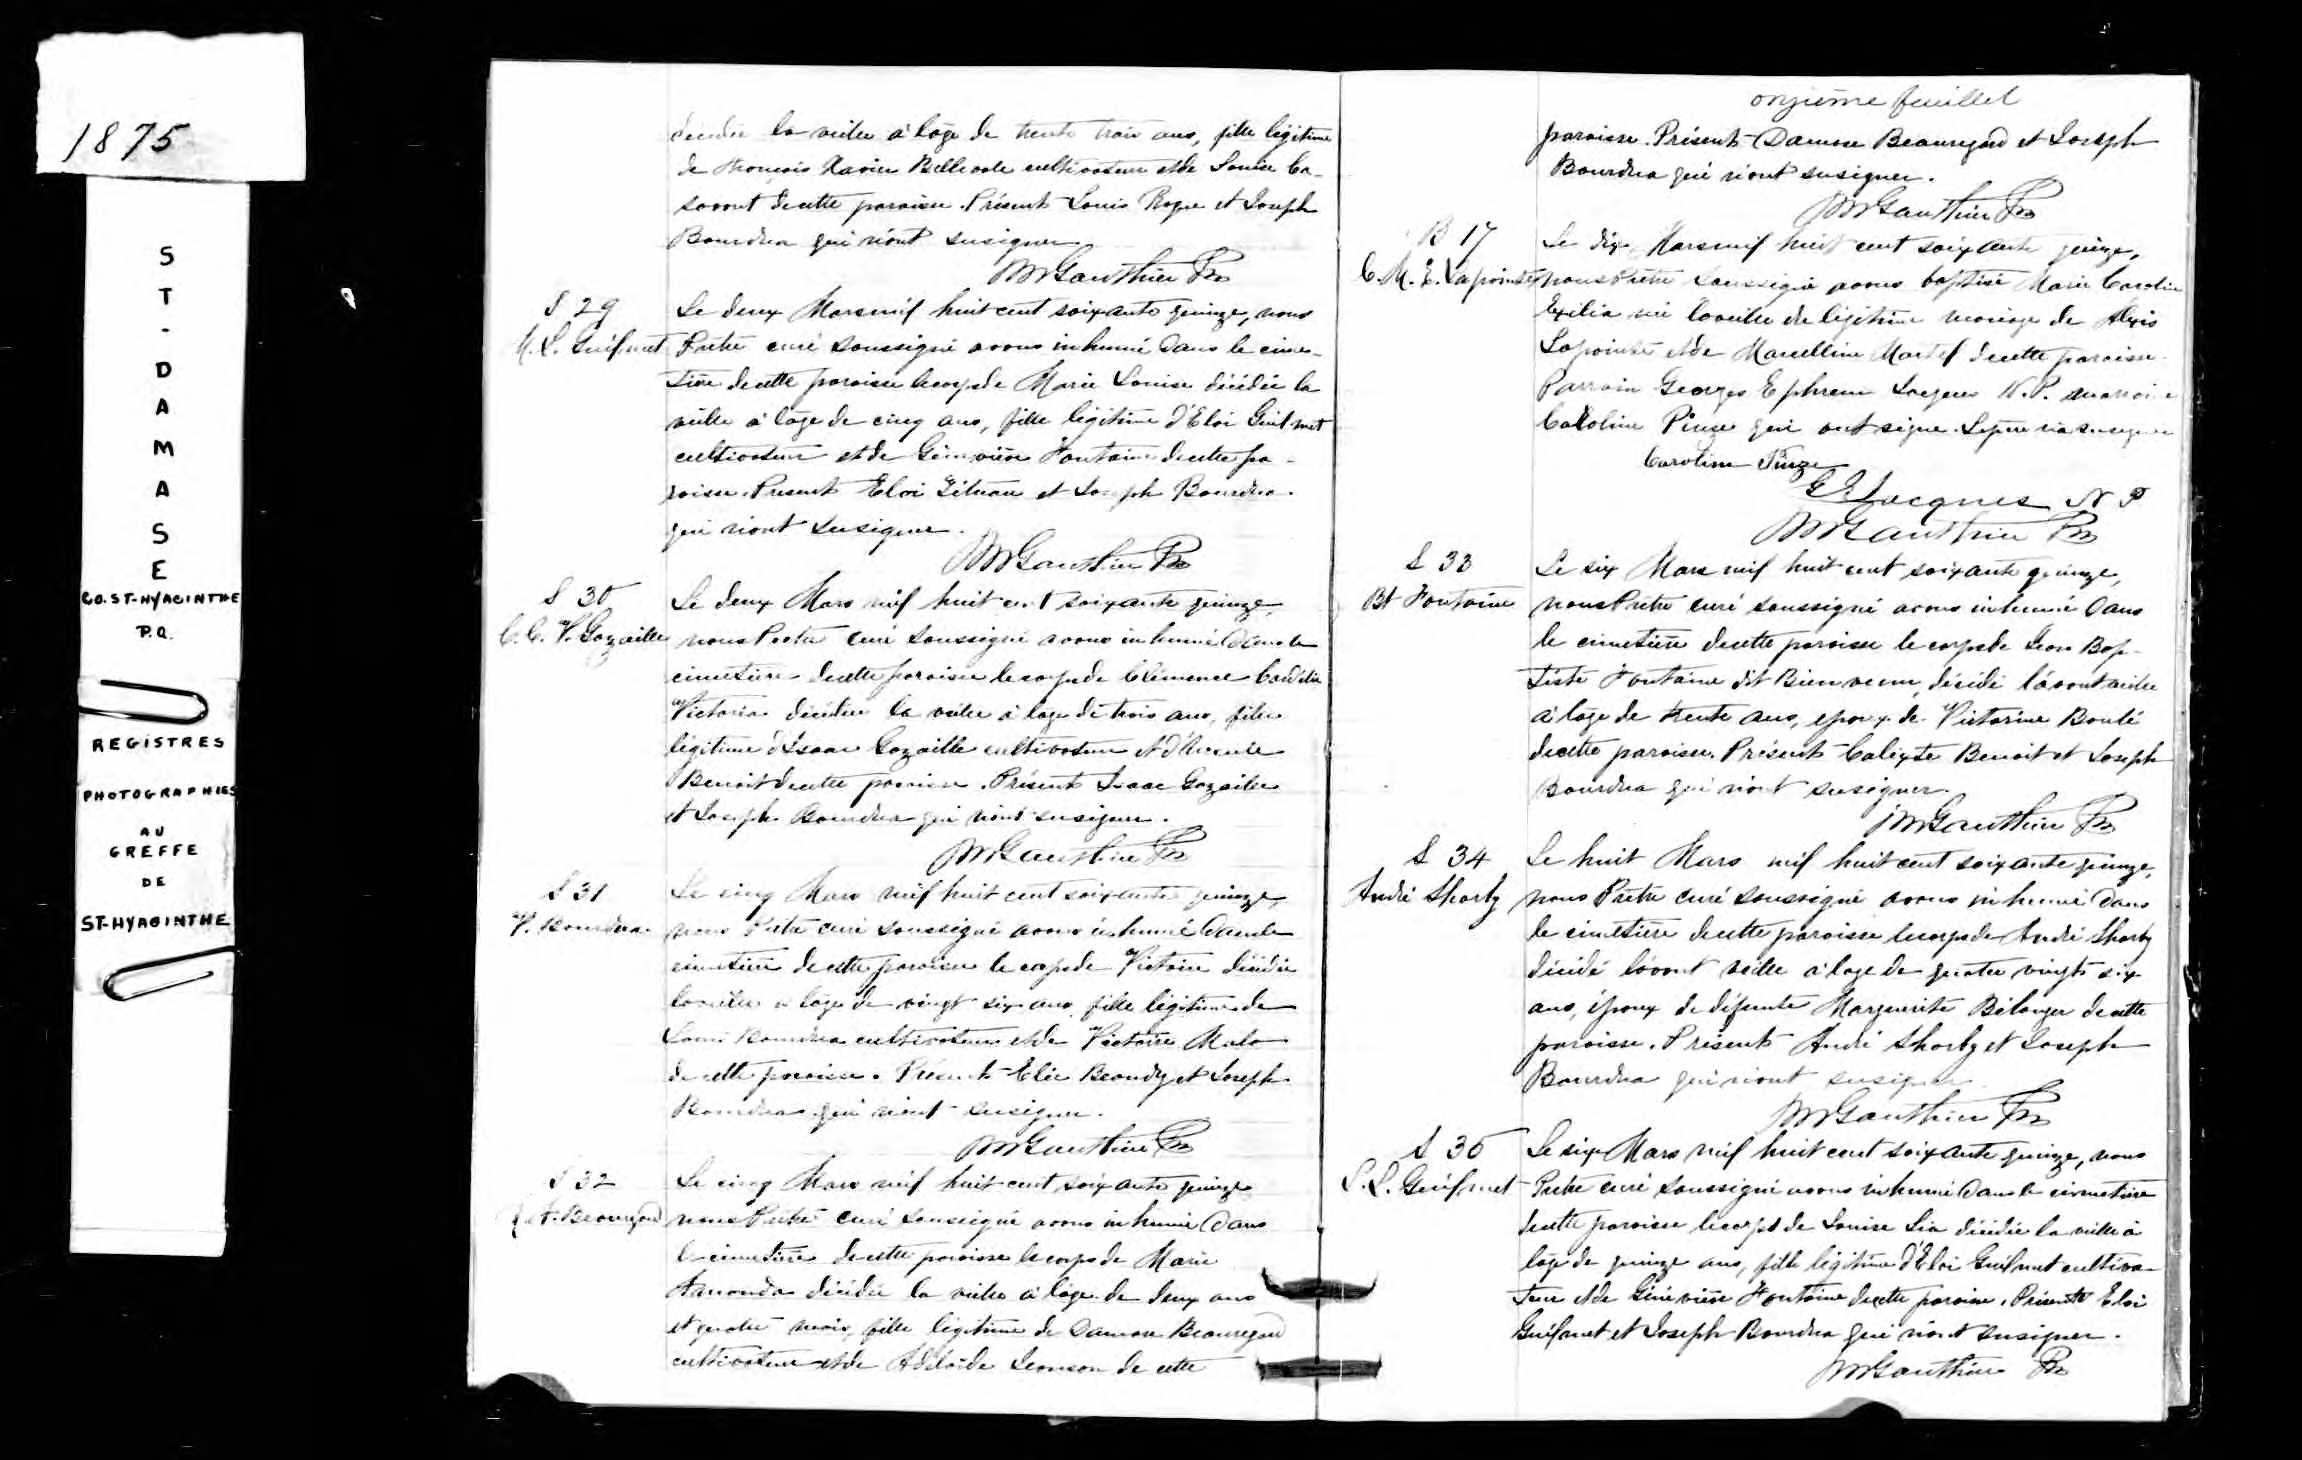 1875
ST-DAMASE
CO. ST-HYACINTHE
P.Q.
REGISTRES
PHOTOGRAPHIES
AU
GREFFE
DE
ST-HYACINTHE
décédée la veille à l'âge de trente trois ans, fille légitime
de François Xavier cultivateur et de Louise
de cette paroisse. Présents Louis et Joseph
Bourdua qui n'ont su signer
Gauthier Ptre
S 29
M. L. Guilmet
Le deux Mars mil huit cent soixante quinze, nous
Prêtre curé soussigné avons inhumé dans le cime-
tière de cette paroisse le corps de Marie Louise décédée la
veille à l'âge de cinq ans, fille légitime d'Eloi Guilmet
cultivateur et de Géneviève Fontaine de cette pa-
roisse. Présents Eloi et Joseph Bourdua.
qui n'ont su signer.
Gauthier Ptre
S 30
C. C. V. Gazaille
Le deux Mars mil huit cent soixante quinze,
nous Prêtre curé soussigné avons inhumé dans le
cimetière de cette paroisse le corps de Clémence
Victoria décédée la veille à l'âge de trois ans, fille
légitime d'Isaac Gazaille cultivateur et
Benoit de cette paroisse. Présents Isaac Gazaille
et Joseph Bourdua qui n'ont su signer.
Gauthier Ptre
S 31
V. Bourdua
Le cinq Mars mil huit cent soixante quinze,
nous Prêtre curé soussigné avons inhumé dans le
cimetière de cette paroisse le corps de Victoire décédée
la veille à l'âge de vingt six ans, fille légitime de
Louis Bourdua cultivateur et de Victoire Malo
de cette paroisse. Présents Elie Beaudry et Joseph
Bourdua qui n'ont su signer.
Gauthier Ptre
S 32
A. Beauregard
Le cinq Mars mil huit cent soixante quinze
nous Prêtre curé soussigné avons inhumé dans
le cimetière de cette paroisse le corps de Marie
Amanda décédée la veille à l'âge de deux ans
et quatre mois, fille légitime de Damase Beauregard
cultivateur et de Adélaïde de cette
onzième feuillet
paroisse. Présents Damase Beauregard et Joseph
Bourdua qui n'ont su signer.
Gauthier Ptre
B 17
C. M. E. Lapointe
Le dix Mars mil huit cent soixante quinze,
nous Prêtre soussigné avons baptisé Marie Caroline
Exilia née la veille du légitime mariage de Alexis
Lapointe et de Marcelline Martel de cette paroisse.
Parrain Georges Ephrem Jacques N.P. marraine
Caroline Pinze qui ont signé. Le père n'a su signer
Caroline Pinze
G E Jacques N P
Gauthier Ptre
S 33
Bt Fontaine
Le six Mars mil huit cent soixante quinze,
nous Prêtre curé soussigné avons inhumé dans
le cimetière de cette paroisse le corps de Jean Bap-
tiste Fontaine dit Bienvenu, décédé l'avant veille
à l'âge de trente ans, époux de Victorine Boulé
de cette paroisse. Présents Calixte Benoit et Joseph
Bourdua qui n'ont su signer.
Gauthier Ptre
S 34
André Shorby
Le huit Mars mil huit cent soixante quinze,
nous Prêtre curé soussigné avons inhumé dans
le cimetière de cette paroisse le corps de André Shorby
décédé l'avant veille à l'âge de quatre vingts six
ans, époux de défunte Marguerite Bélanger de cette
paroisse. Présents André Shorby et Joseph
Bourdua qui n'ont su signer.
Gauthier Ptre
S 35
L. L. Guilmet
Le six Mars mil huit cent soixante quinze, nous
Prêtre curé soussigné avons inhumé dans le cimetière
de cette paroisse le corps de Louise Lia décédée la veille à
l'âge de quinze ans, fille légitime d'Eloi Guilmet cultiva-
teur et de Géneviève Fontaine de cette paroisse. Présents Eloi
Guilmet et Joseph Bourdua qui n'ont su signer.
Gauthier Ptre